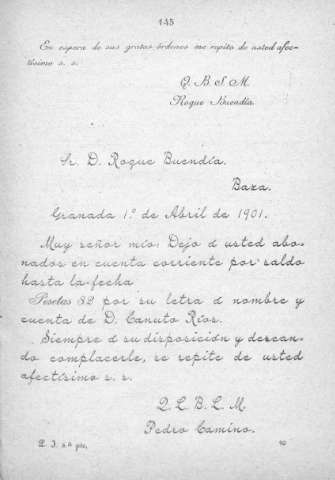 145
En espera de sus gratas órdenes me repito de usted afec-
tísimo s. s.
Q. B. S. M.
Roque Buendía.
Sr. D. Roque Buendía.
Baza.
Granada 1.º de Abril de 1901.
Muy señor mío: Dejo á usted abo-
nados en cuenta corriente por saldo
hasta la fecha
Pesetas 32 por su letra á nombre y
cuenta de D. Canuto Ríos.
Siempre á su disposición y desean-
do complacerle, se repite de usted
afectísimo s. s.
Q. L. B. L. M.
Pedro Camino.
P. J. 2.ª pte.
10